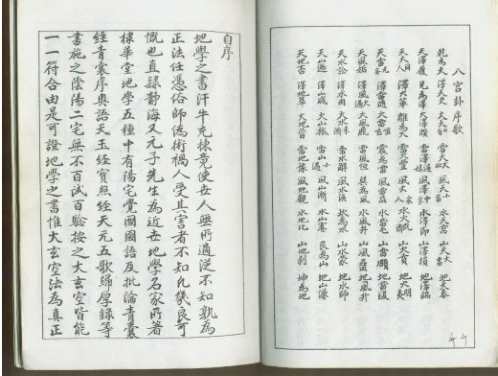 八宮卦序歌
乾為天 澤天夬 火天大有 雷天大壯 風天小畜 水天需 山天大畜 地天泰
天澤履 兌為澤 火澤睽 雷澤歸妹 風澤中孚 水澤節 山澤損 地澤臨
天火同人 澤火革 離為火 雷火豐 風火家人 水火既濟 山火賁 地火明夷
天雷无妄 澤雷隨 火雷噬嗑 震為雷 風雷益 水雷屯 山雷頤 地雷復
天風姤 澤風大過 火風鼎 雷風恒 巽為風 水風井 山風蠱 地風升
天水訟 澤水困 火水未濟 雷水解 風水渙 坎為水 山水蒙 地水師
天山遯 澤山咸 火山旅 雷山小過 風山漸 水山蹇 艮為山 地山謙
天地否 澤地萃 火地晉 雷地豫 風地觀 水地比 山地剝 坤為地
自序
地學之書汗牛充棟竟使世人無所適從不知孰為
正法任憑俗師偽術禍人受其害者不知凡幾良可
慨也直隸靜海又元子先生為近世地學名家所著
棣華堂地學五種中有陽宅覺國語及批論青囊
經青囊序奧語天玉經寶照經天元五歌歸厚錄等
書施之陰陽二宅無不百試百驗按之大玄空皆能
一一符合由是可證地學之書惟大玄空法為真正